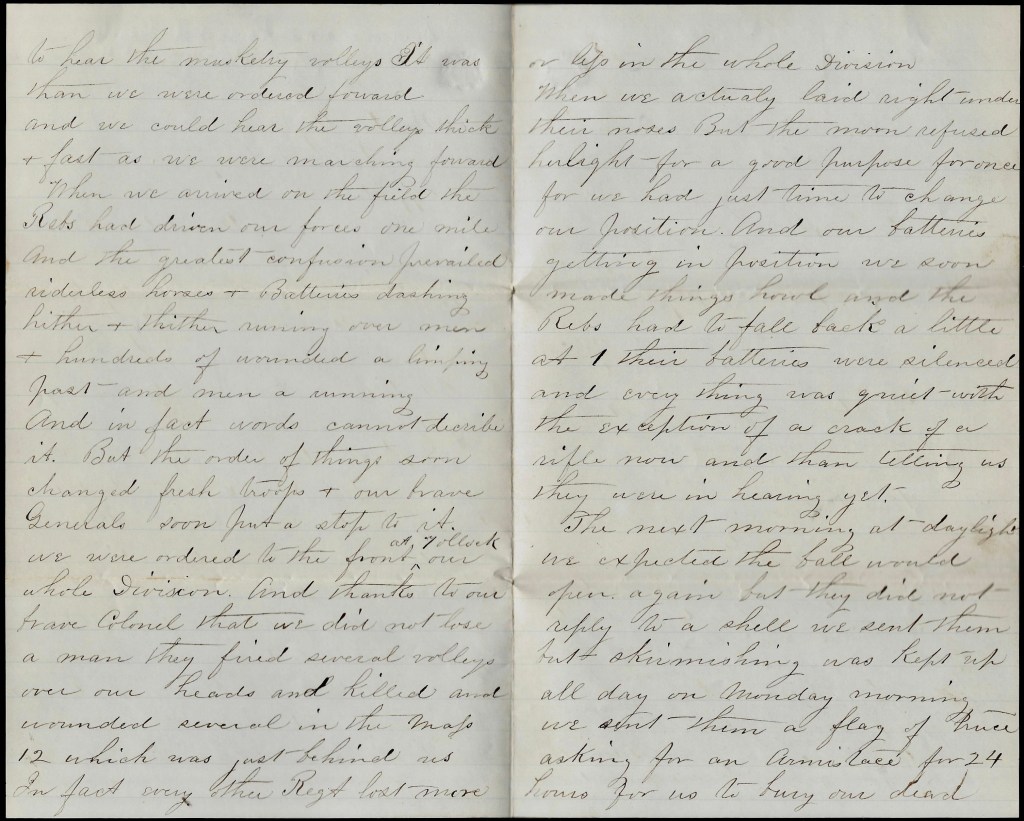 to hear the musketry volleys It was
than we were ordered foward
and we could hear the volleys thick
+ fast as we were marching foward
When we arrived on the field the
Rebs had driven our forces one mile
and the greatest confusion prevailed
riderless horses + Batteries dashing
hither + thither runing over men
+ hundreds of wounded a limping
past and men a running
And in fact words cannot decribe
it. But the order of things soon
changed fresh troops + our brave
Generals soon put a stop to it.
we were ordered to the front at 7 ollock our
whole Division. And thanks to our
brave Colonel that we did not lose
a man they fired several volleys
over our heads and killed and
wounded several in the Mass
12 which was just behind us
In fact every other Regt lost more
or less in the whole Division
When we actualy laid right under
their noses But the moon refused
her light for a good purpose for once
for we had just time to change
our position. And our batteries
getting in position we soon
made things howl and the
Rebs had to fall back a little
at 1 their batteries were silenced
and every thing was quiet with
the exception of a crack of a
rifle now and than telling us
they were in hearing yet.
The next morning at daylight
we expected the ball would
open again but they did not
reply to a shell we sent them
but skirmishing was kept up
all day on Monday morning
we sent them a flag of truce
asking for an Armistace for 24
hours for us to bury our dead